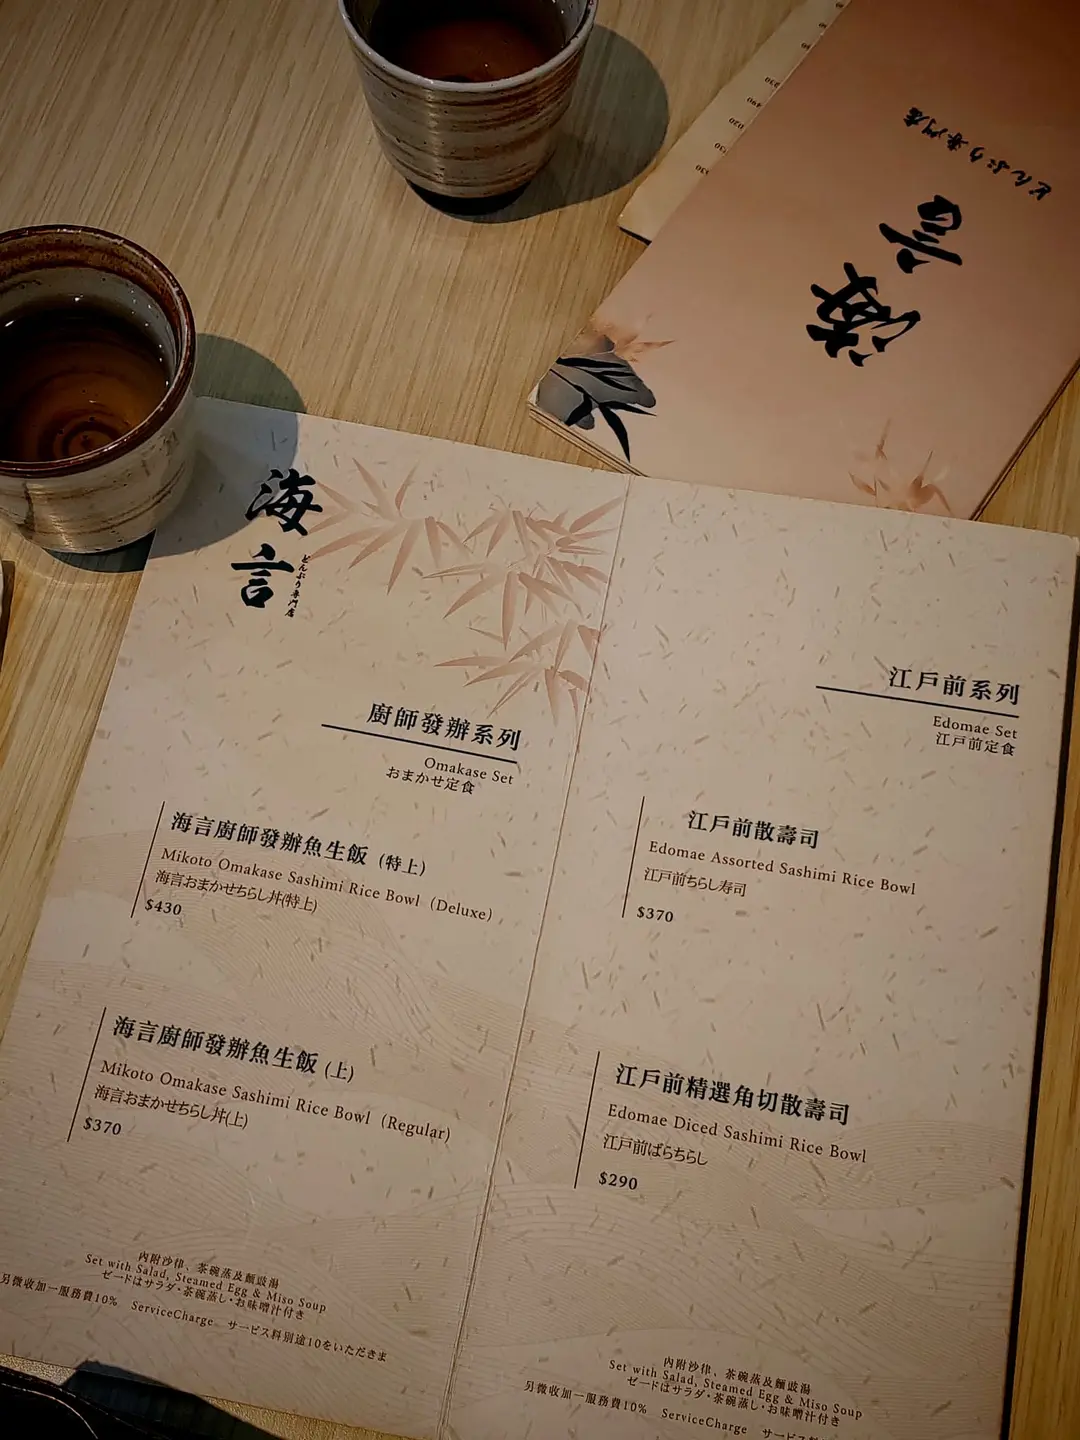 どんぶり専門店
海言
海言
どんぶり専門店
廚師發辦系列
Omakase Set
おまかせ定食
海言廚師發辦魚生飯（特上）
Mikoto Omakase Sashimi Rice Bowl（Deluxe）
海言おまかせちらし丼(特上)
$430
海言廚師發辦魚生飯 (上)
Mikoto Omakase Sashimi Rice Bowl（Regular)
海言おまかせちらし丼(上)
$370
內附沙律、茶碗蒸及麵豉湯
Set with Salad, Steamed Egg & Miso Soup
ゼードはサラダ･茶碗蒸し･お味噌汁付き
另微收加一服務費10% ServiceCharge サービス料別途10をいただきま
江戶前系列
Edomae Set
江戸前定食
江戶前散壽司
Edomae Assorted Sashimi Rice Bowl
江戸前ちらし寿司
$370
江戶前精選角切散壽司
Edomae Diced Sashimi Rice Bowl
江戸前ばらちらし
$290
內附沙律、茶碗蒸及麵豉湯
Set with Salad, Steamed Egg & Miso Soup
ゼードはサラダ･茶碗蒸し･お味噌汁付き
另微收加一服務費10% ServiceCharge サービス